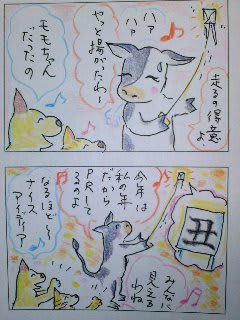 走るの得意よ
ハァ
ハァ
やっと揚がったわー
モモちゃん
だったの
丑
みんなに
見えるわね
今年は
私の年
だから
PRして
るのよ
なるほど～
ナイス
アイディア